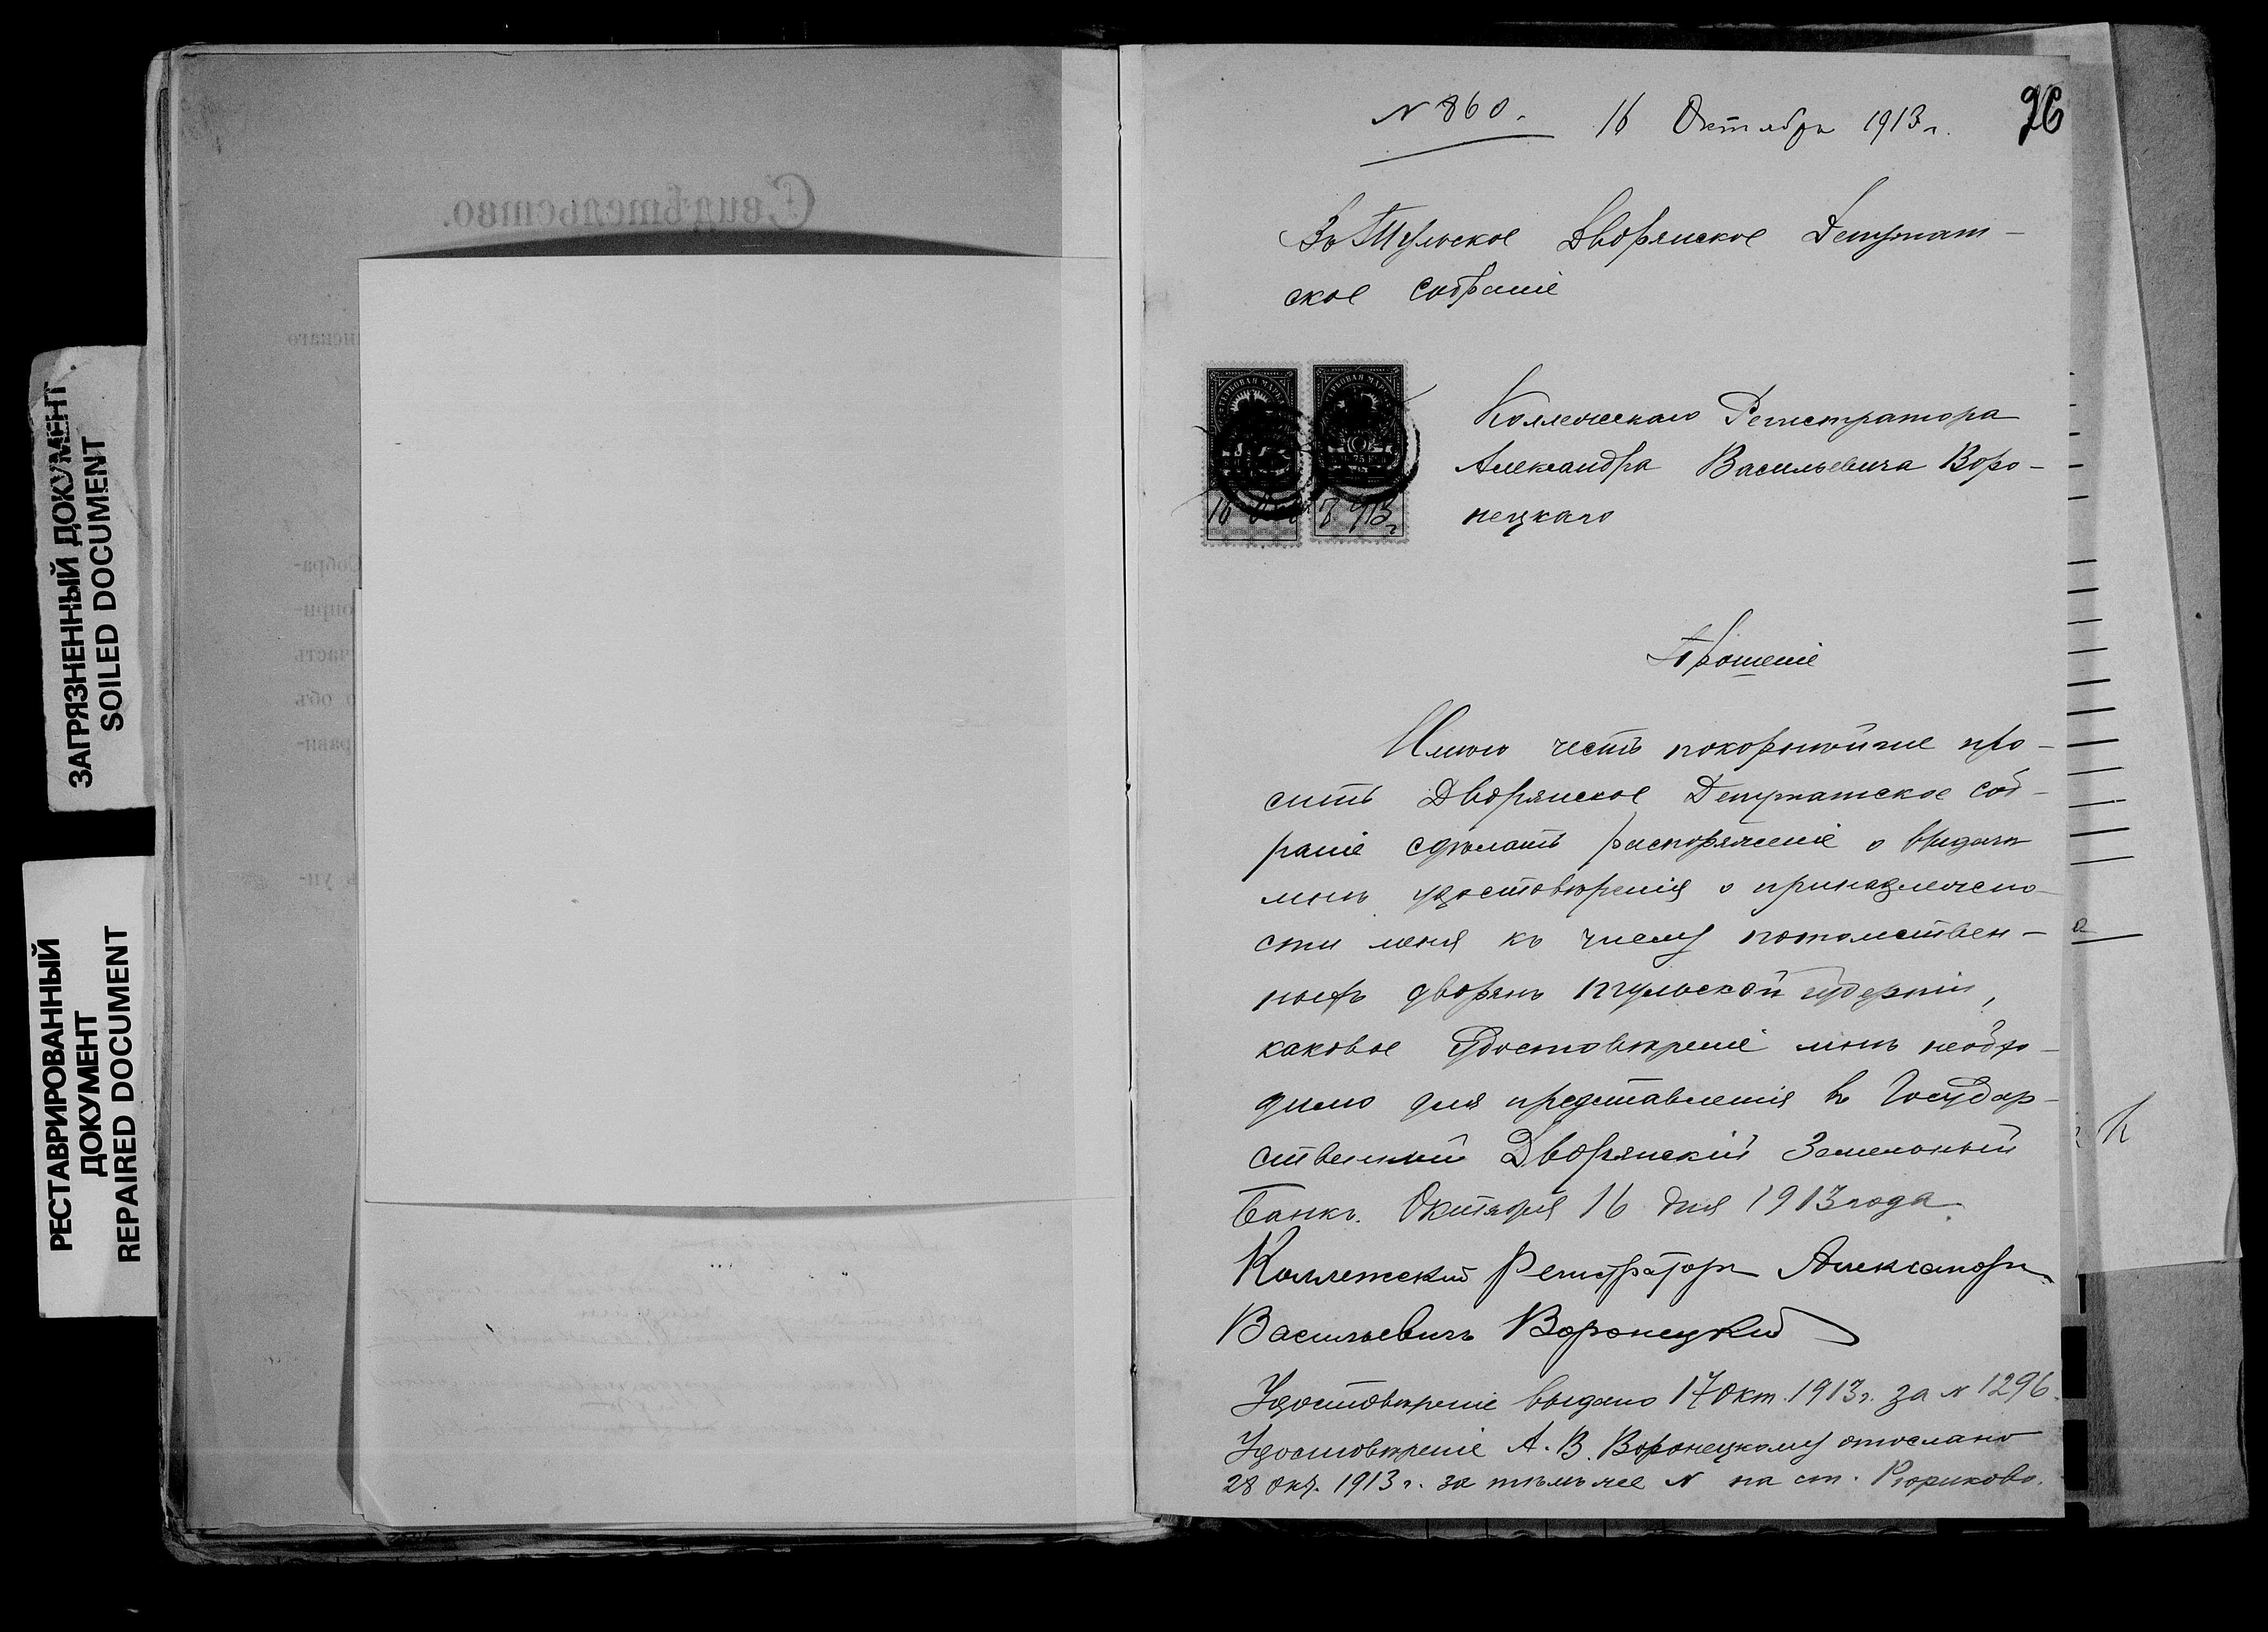 ЗАГРЯЗНЕННЫЙ ДОКУМЕНТ
SOILED DOCUMENT
РЕСТАВРИРОВАННЫЙ
ДОКУМЕНТ
REPAIRED DOCUMENT
Свидѣтельство.
№ 860.
16 Октябрь 1913 г.
Въ Тульское Дворянское Депутат-
ское собраніе
ГЕРБОВАЯ МАРКА
ГЕРБОВАЯ МАРКА
75
16 Окт 1913 г
Коллежскаго Регистратора
Александра Васильевича Воро-
нецкаго
Прошеніе
Имѣю честь покорнѣйше про-
сить Дворянское Депутатское соб-
раніе сдѣлать распоряженіе о выдачѣ
мнѣ удостовѣренія о принадлежно-
сти меня къ числу потомствен-
ныхъ дворянъ Тульской губерніи,
каковое удостовѣреніе мнѣ необхо-
димо для представленія въ Государ-
ственный Дворянскій Земельный
Банкъ. Октября 16 дня 1913 года.
Коллежскій Регистраторъ Александръ
Васильевичъ Воронецкій
Удостовѣреніе выдано 17 Окт. 1913 г. за № 1296.
Удостовѣреніе А. В. Воронецкому отослано
28 Окт. 1913 г. за тѣмъ же № на ст. Рюриково.